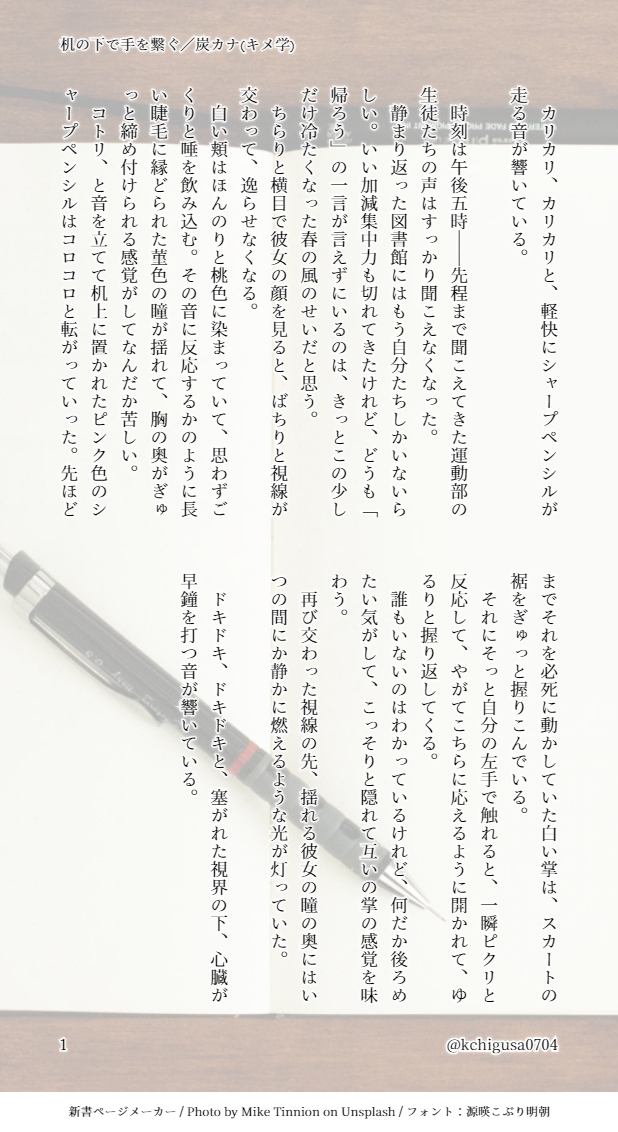 机の下で手を繋ぐ／炭カナ(キメ学)
カリカリ、カリカリと、軽快にシャープペンシルが
走る音が響いている。
時刻は午後五時――先程まで聞こえてきた運動部の
生徒たちの声はすっかり聞こえなくなった。
静まり返った図書館にはもう自分たちしかいないら
しい。いい加減集中力も切れてきたけれど、どうも「
帰ろう」の一言が言えずにいるのは、きっとこの少し
だけ冷たくなった春の風のせいだと思う。
ちらりと横目で彼女の顔を見ると、ぱちりと視線が
交わって、逸らせなくなる。
白い頬はほんのりと桃色に染まっていて、思わずご
くりと唾を飲み込む。その音に反応するかのように長
い睫毛に縁どられた菫色の瞳が揺れて、胸の奥がぎゅ
っと締め付けられる感覚がしてなんだか苦しい。
コトリ、と音を立てて机上に置かれたピンク色のシ
ャープペンシルはコロコロと転がっていった。先ほど
までそれを必死に動かしていた白い掌は、スカートの
裾をぎゅっと握りこんでいる。
それにそっと自分の左手で触れると、一瞬ピクリと
反応して、やがてこちらに応えるように開かれて、ゆ
るりと握り返してくる。
誰もいないのはわかっているけれど、何だか後ろめ
たい気がして、こっそりと隠れて互いの掌の感覚を味
わう。
再び交わった視線の先、揺れる彼女の瞳の奥にはい
つの間にか静かに燃えるような光が灯っていた。
ドキドキ、ドキドキと、塞がれた視界の下、心臓が
早鐘を打つ音が響いている。
1
@kchigusa0704
新書ページメーカー / Photo by Mike Tinnion on Unsplash / フォント：源暎こぶり明朝